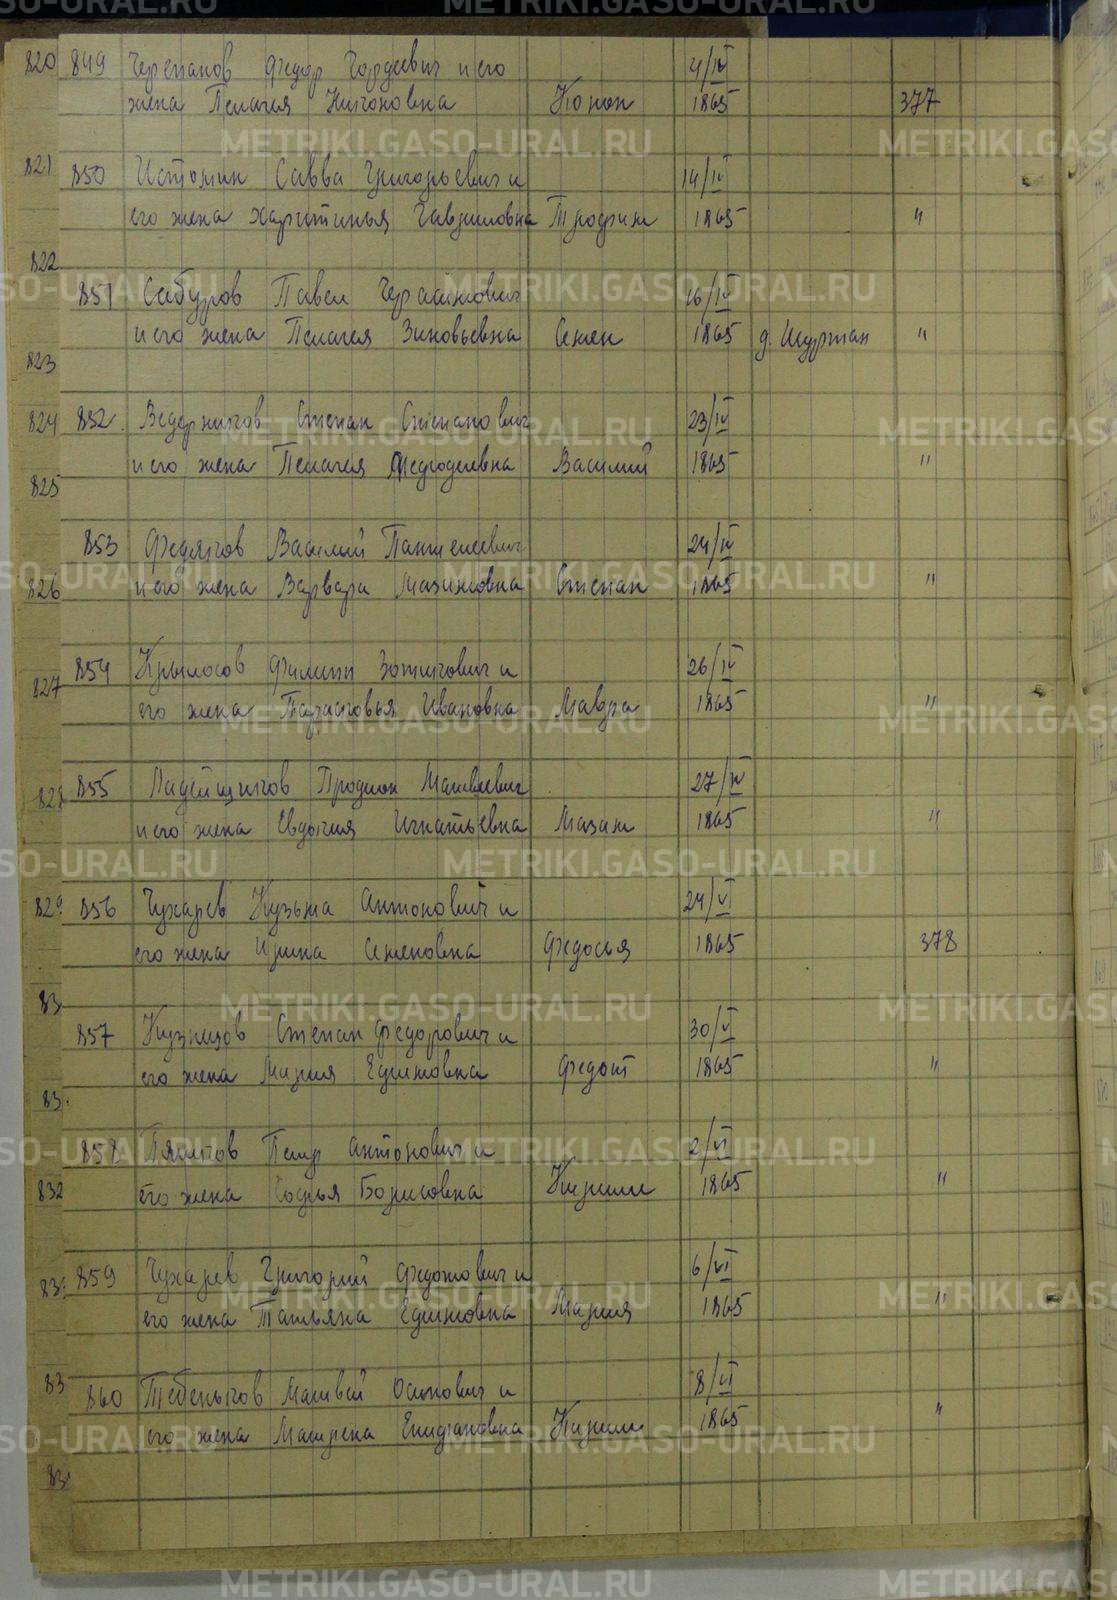 820 849 Черепанов Федор Гордеевич и его 4/IV
жена Пелагея Никоновна Конон 1865 377
821 850 Истомин Савва Григорьевич и 14/IV
его жена Харитинья Гавриловна Трофим 1865 "
822
851 Сабуров Павел Герасимович 16/IV
и его жена Пелагея Зиновьевна Семен 1865 д. Шуртан "
823
824 852. Ведерников Степан Степанович 23/IV
и его жена Пелагея Василий 1865 "
825
853 Федяков Василий Пантелеевич 24/IV
826 и его жена Варвара Максимовна Степан 1865 "
827 854 Крылосов Филипп Зотикович и 26/IV
его жена Парасковья Ивановна Мавра 1865 "
828 855 Ладейщиков Продион Матвеевич 27/IV
и его жена Евдокия Игнатьевна Мазам 1865 "
829 856 Чухарев Кузьма Антонович и 24/VI
его жена Ирина Семеновна Федосья 1865 378
83
857 Кузнецов Степан Федорович и 30/VI
его жена Мария Ефимовна Федот 1865 "
83.
858 Пяолков Петр Антонович и 2/VI
832 Его жена Софья Борисовна Кирилл 1865 "
83 859 Чухарев Григорий Федотович и 6/VI
его жена Татьяна Ефимовна Мария 1865 "
83 860 Тебеньков Матвей Осипович и 8/VI
его жена Матрена Епифановна Кирилл 1865 "
83
METRIKI.GASO-URAL.RU